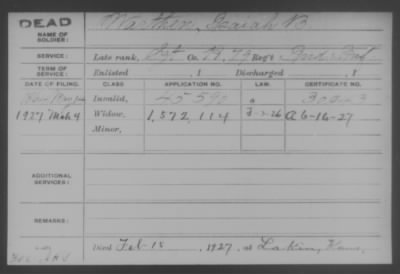 DEAD
NAME OF SOLDIER: Warthen, Isaiah B
SERVICE: Late rank, Sgt Co. H, 79 Reg't Ind. Inf
TERM OF SERVICE: Enlisted , 1 Discharged , 1
DATE OF FILING. CLASS. APPLICATION NO. LAW. CERTIFICATE NO.
Invalid,
1927 Mch 4 Widow, 1,572,114 A 6-16-27
Minor,
ADDITIONAL SERVICES:
REMARKS:
Died Feb-18 , 1927, at Lakin, Kans.